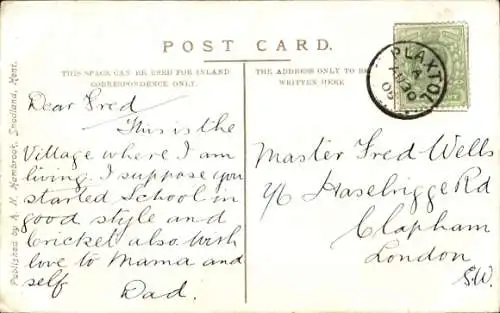 POST CARD.
THIS SPACE CAN BE USED FOR INLAND
CORRESPONDENCE ONLY.
THE ADDRESS ONLY TO BE
WRITTEN HERE
PLAXTOL
A
06
Dear Fred
This is the
Village where I am
living. I suppose you
started School in
good style and
Cricket also. With
love to Mama and
self
Dad.
Master Fred Wells
Haselrigge Rd
Clapham
London
S.W.
Published by A. N. Hambrook, Snodland, Kent.